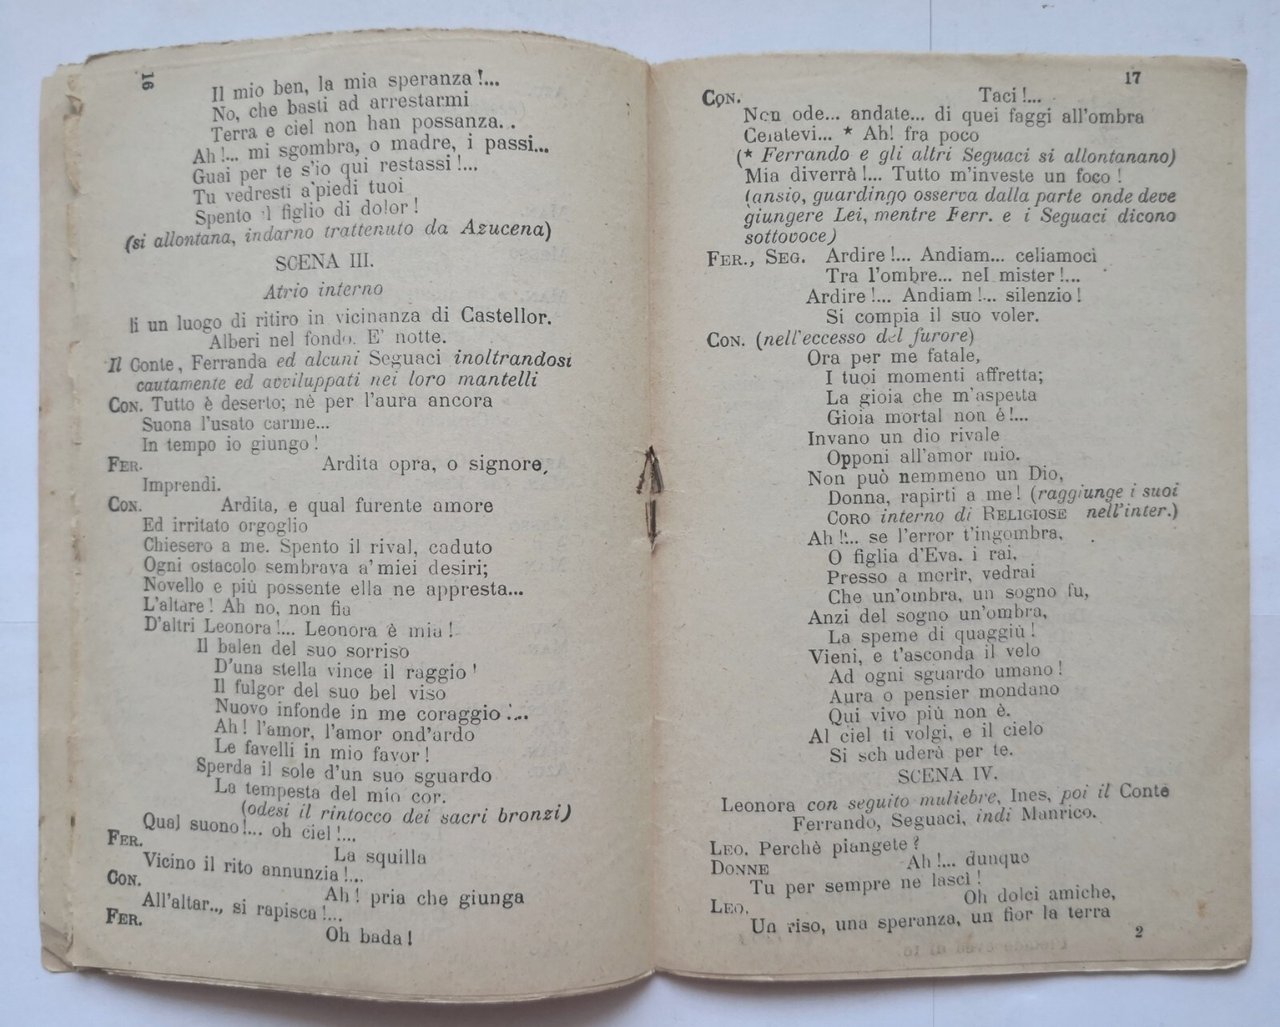 16
Il mio ben, la mia speranza!...
No, che basti ad arrestarmi
Terra e ciel non han possanza..
Ah!... mi sgombra, o madre, i passi...
Guai per te s'io qui restassi!...
Tu vedresti a' piedi tuoi
Spento il figlio di dolor!
(si allontana, indarno trattenuto da Azucena)
SCENA III.
Atrio interno
li un luogo di ritiro in vicinanza di Castellor.
Alberi nel fondo. E' notte.
Il Conte, Ferranda ed alcuni Seguaci inoltrandosi
cautamente ed avviluppati nei loro mantelli
CON. Tutto è deserto; nè per l'aura ancora
Suona l'usato carme...
In tempo io giungo!
FER. Ardita opra, o signore,
Imprendi.
CON. Ardita, e qual furente amore
Ed irritato orgoglio
Chiesero a me. Spento il rival, caduto
Ogni ostacolo sembrava a' miei desiri;
Novello e più possente ella ne appresta...
L'altare! Ah no, non fia
D'altri Leonora!... Leonora è mia!
Il balen del suo sorriso
D'una stella vince il raggio!
Il fulgor del suo bel viso
Nuovo infonde in me coraggio!...
Ah! l'amor, l'amor ond'ardo
Le favelli in mio favor!
Sperda il sole d'un suo sguardo
La tempesta del mio cor.
(odesi il rintocco dei sacri bronzi)
Qual suono!... oh ciel!...
FER. La squilla
Vicino il rito annunzia!...
CON. Ah! pria che giunga
All'altar.., si rapisca!...
FER. Oh bada!
17
CON. Taci!...
Non ode... andate... di quei faggi all'ombra
Celatevi... * Ah! fra poco
(* Ferrando e gli altri Seguaci si allontanano)
Mia diverrà!... Tutto m'investe un foco!
(ansio, guardingo osserva dalla parte onde deve
giungere Lei, mentre Ferr. e i Seguaci dicono
sottovoce)
FER., SEG. Ardire!... Andiam... celiamoci
Tra l'ombre... nel mister!...
Ardire!... Andiam!... silenzio!
Si compia il suo voler.
CON. (nell'eccesso del furore)
Ora per me fatale,
I tuoi momenti affretta;
La gioia che m'aspetta
Gioia mortal non è!...
Invano un dio rivale
Opponi all'amor mio.
Non può nemmeno un Dio,
Donna, rapirti a me! (raggiunge i suoi
CORO interno di RELIGIOSE nell'inter.)
Ah!... se l'error t'ingombra,
O figlia d'Eva, i rai,
Presso a morir, vedrai
Che un'ombra, un sogno fu,
Anzi del sogno un'ombra,
La speme di quaggiù!
Vieni, e t'asconda il velo
Ad ogni sguardo umano!
Aura o pensier mondano
Qui vivo più non è.
Al ciel ti volgi, e il cielo
Si sch uderà per te.
SCENA IV.
Leonora con seguito muliebre, Ines, poi il Conte
Ferrando, Seguaci, indi Manrico.
LEO. Perchè piangete?
DONNE Ah!... dunque
Tu per sempre ne lasci!
LEO. Oh dolci amiche,
Un riso, una speranza, un fior la terra
2